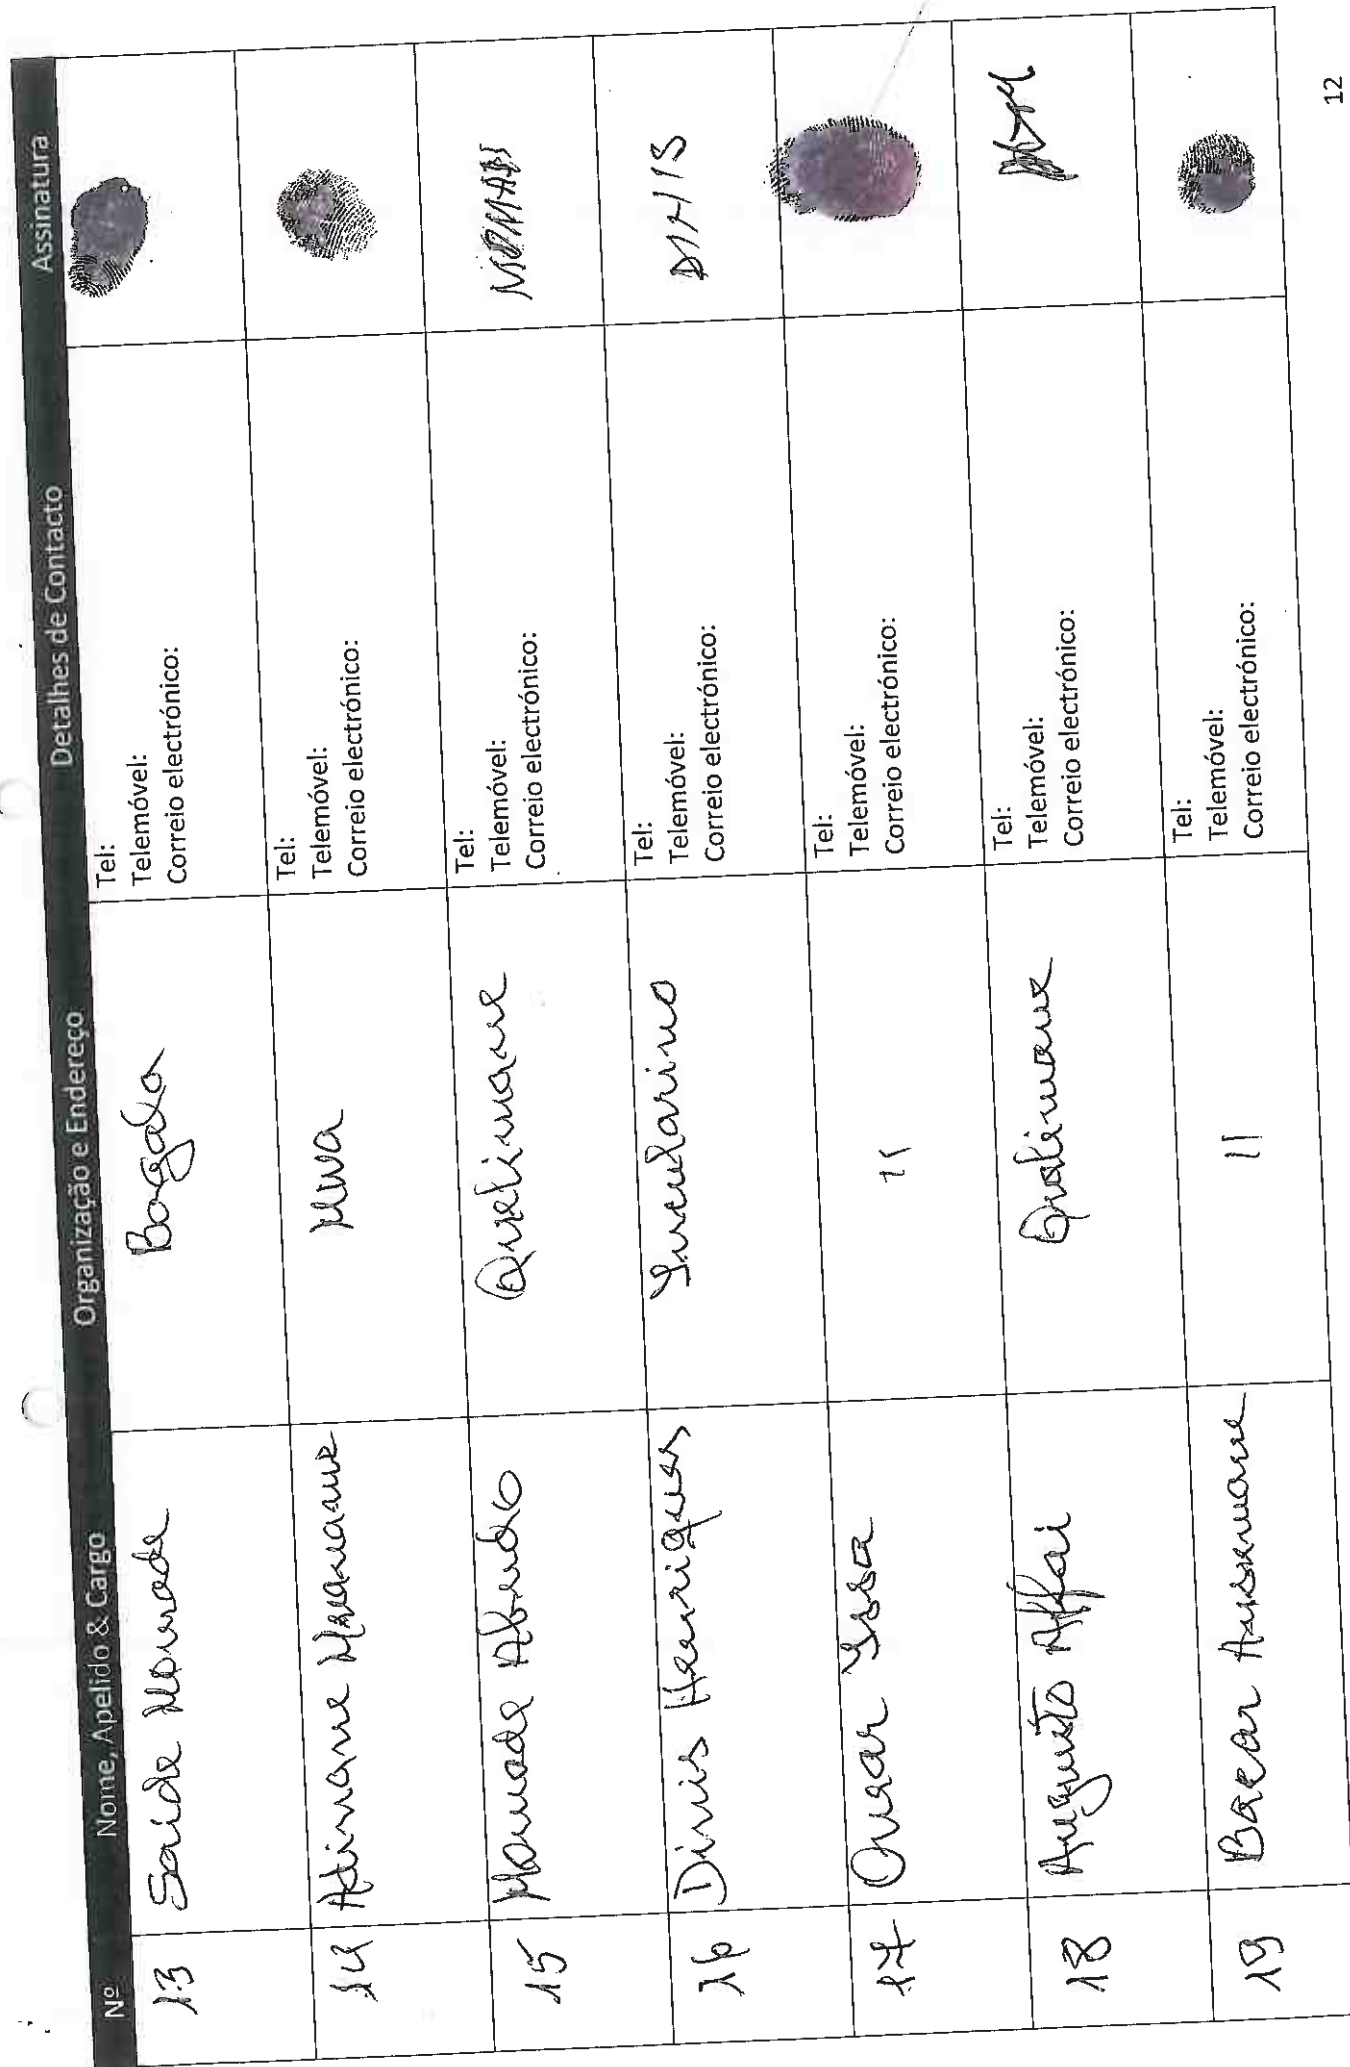 Nº Nome, Apelido & Cargo Organização e Endereço Detalhes de Contacto Assinatura
13 Saide Momade Bagala
Tel:
Telemóvel:
Correio electrónico:
14
Tel:
Telemóvel:
Correio electrónico:
15 Momade Abudo Quelimane
Tel:
Telemóvel:
Correio electrónico:
16 Dinis Henriques DINIS
Tel:
Telemóvel:
Correio electrónico:
17 Omar Issa 11
Tel:
Telemóvel:
Correio electrónico:
18 Augusto Affai Quelimane
Tel:
Telemóvel:
Correio electrónico:
19 Bacar Assumane 11
Tel:
Telemóvel:
Correio electrónico:
12